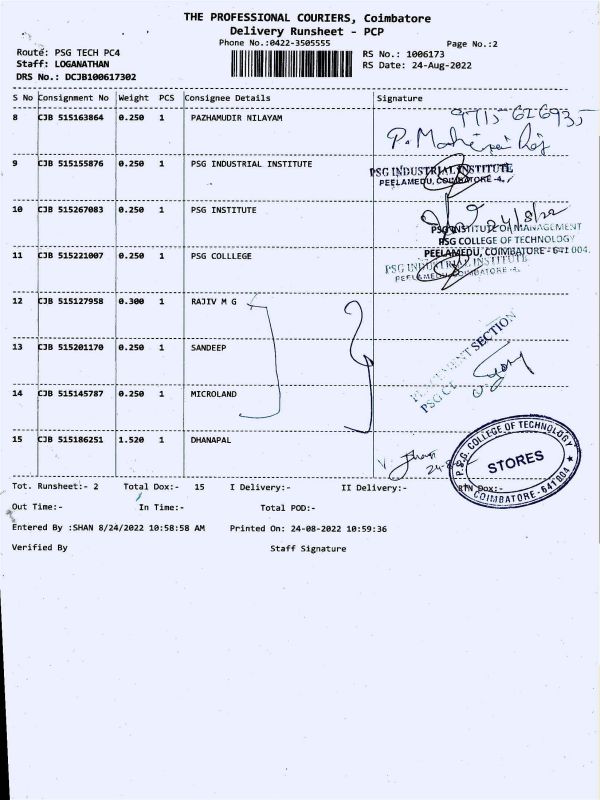 THE PROFESSIONAL COURIERS, Coimbatore
Delivery Runsheet - PCP
Phone No.:0422-3505555
Page No.:2
Route: PSG TECH PC4
RS No.: 1006173
Staff: LOGANATHAN
RS Date: 24-Aug-2022
DRS No.: DCJB100617302
S No Consignment No Weight PCS Consignee Details Signature
8 CJB 515163864 0.250 1 PAZHAMUDIR NILAYAM
9715-626935
9 CJB 515155876 0.250 1 PSG INDUSTRIAL INSTITUTE
PSG INDUSTRIAL INSTITUTE
PEELAMEDU, COIMBATORE -4.
10 CJB 515267083 0.250 1 PSG INSTITUTE
24/8/22
PSG INSTITUTE OF MANAGEMENT
PSG COLLEGE OF TECHNOLOGY
PEELAMEDU, COIMBATORE - 641 004.
11 CJB 515221007 0.250 1 PSG COLLLEGE
PSG INDUSTRIAL INSTITUTE
PEELAMEDU, COIMBATORE -4.
12 CJB 515127958 0.300 1 RAJIV M G
13 CJB 515201170 0.250 1 SANDEEP
PLACEMENT SECTION
PSG CT
14 CJB 515145787 0.250 1 MICROLAND
15 CJB 515186251 1.520 1 DHANAPAL
P.S.G. COLLEGE OF TECHNOLOGY
STORES
COIMBATORE - 641 004
Tot. Runsheet:- 2 Total Dox:- 15 I Delivery:- II Delivery:- RTN Dox:-
Out Time:- In Time:- Total POD:-
Entered By :SHAN 8/24/2022 10:58:58 AM Printed On: 24-08-2022 10:59:36
Verified By Staff Signature